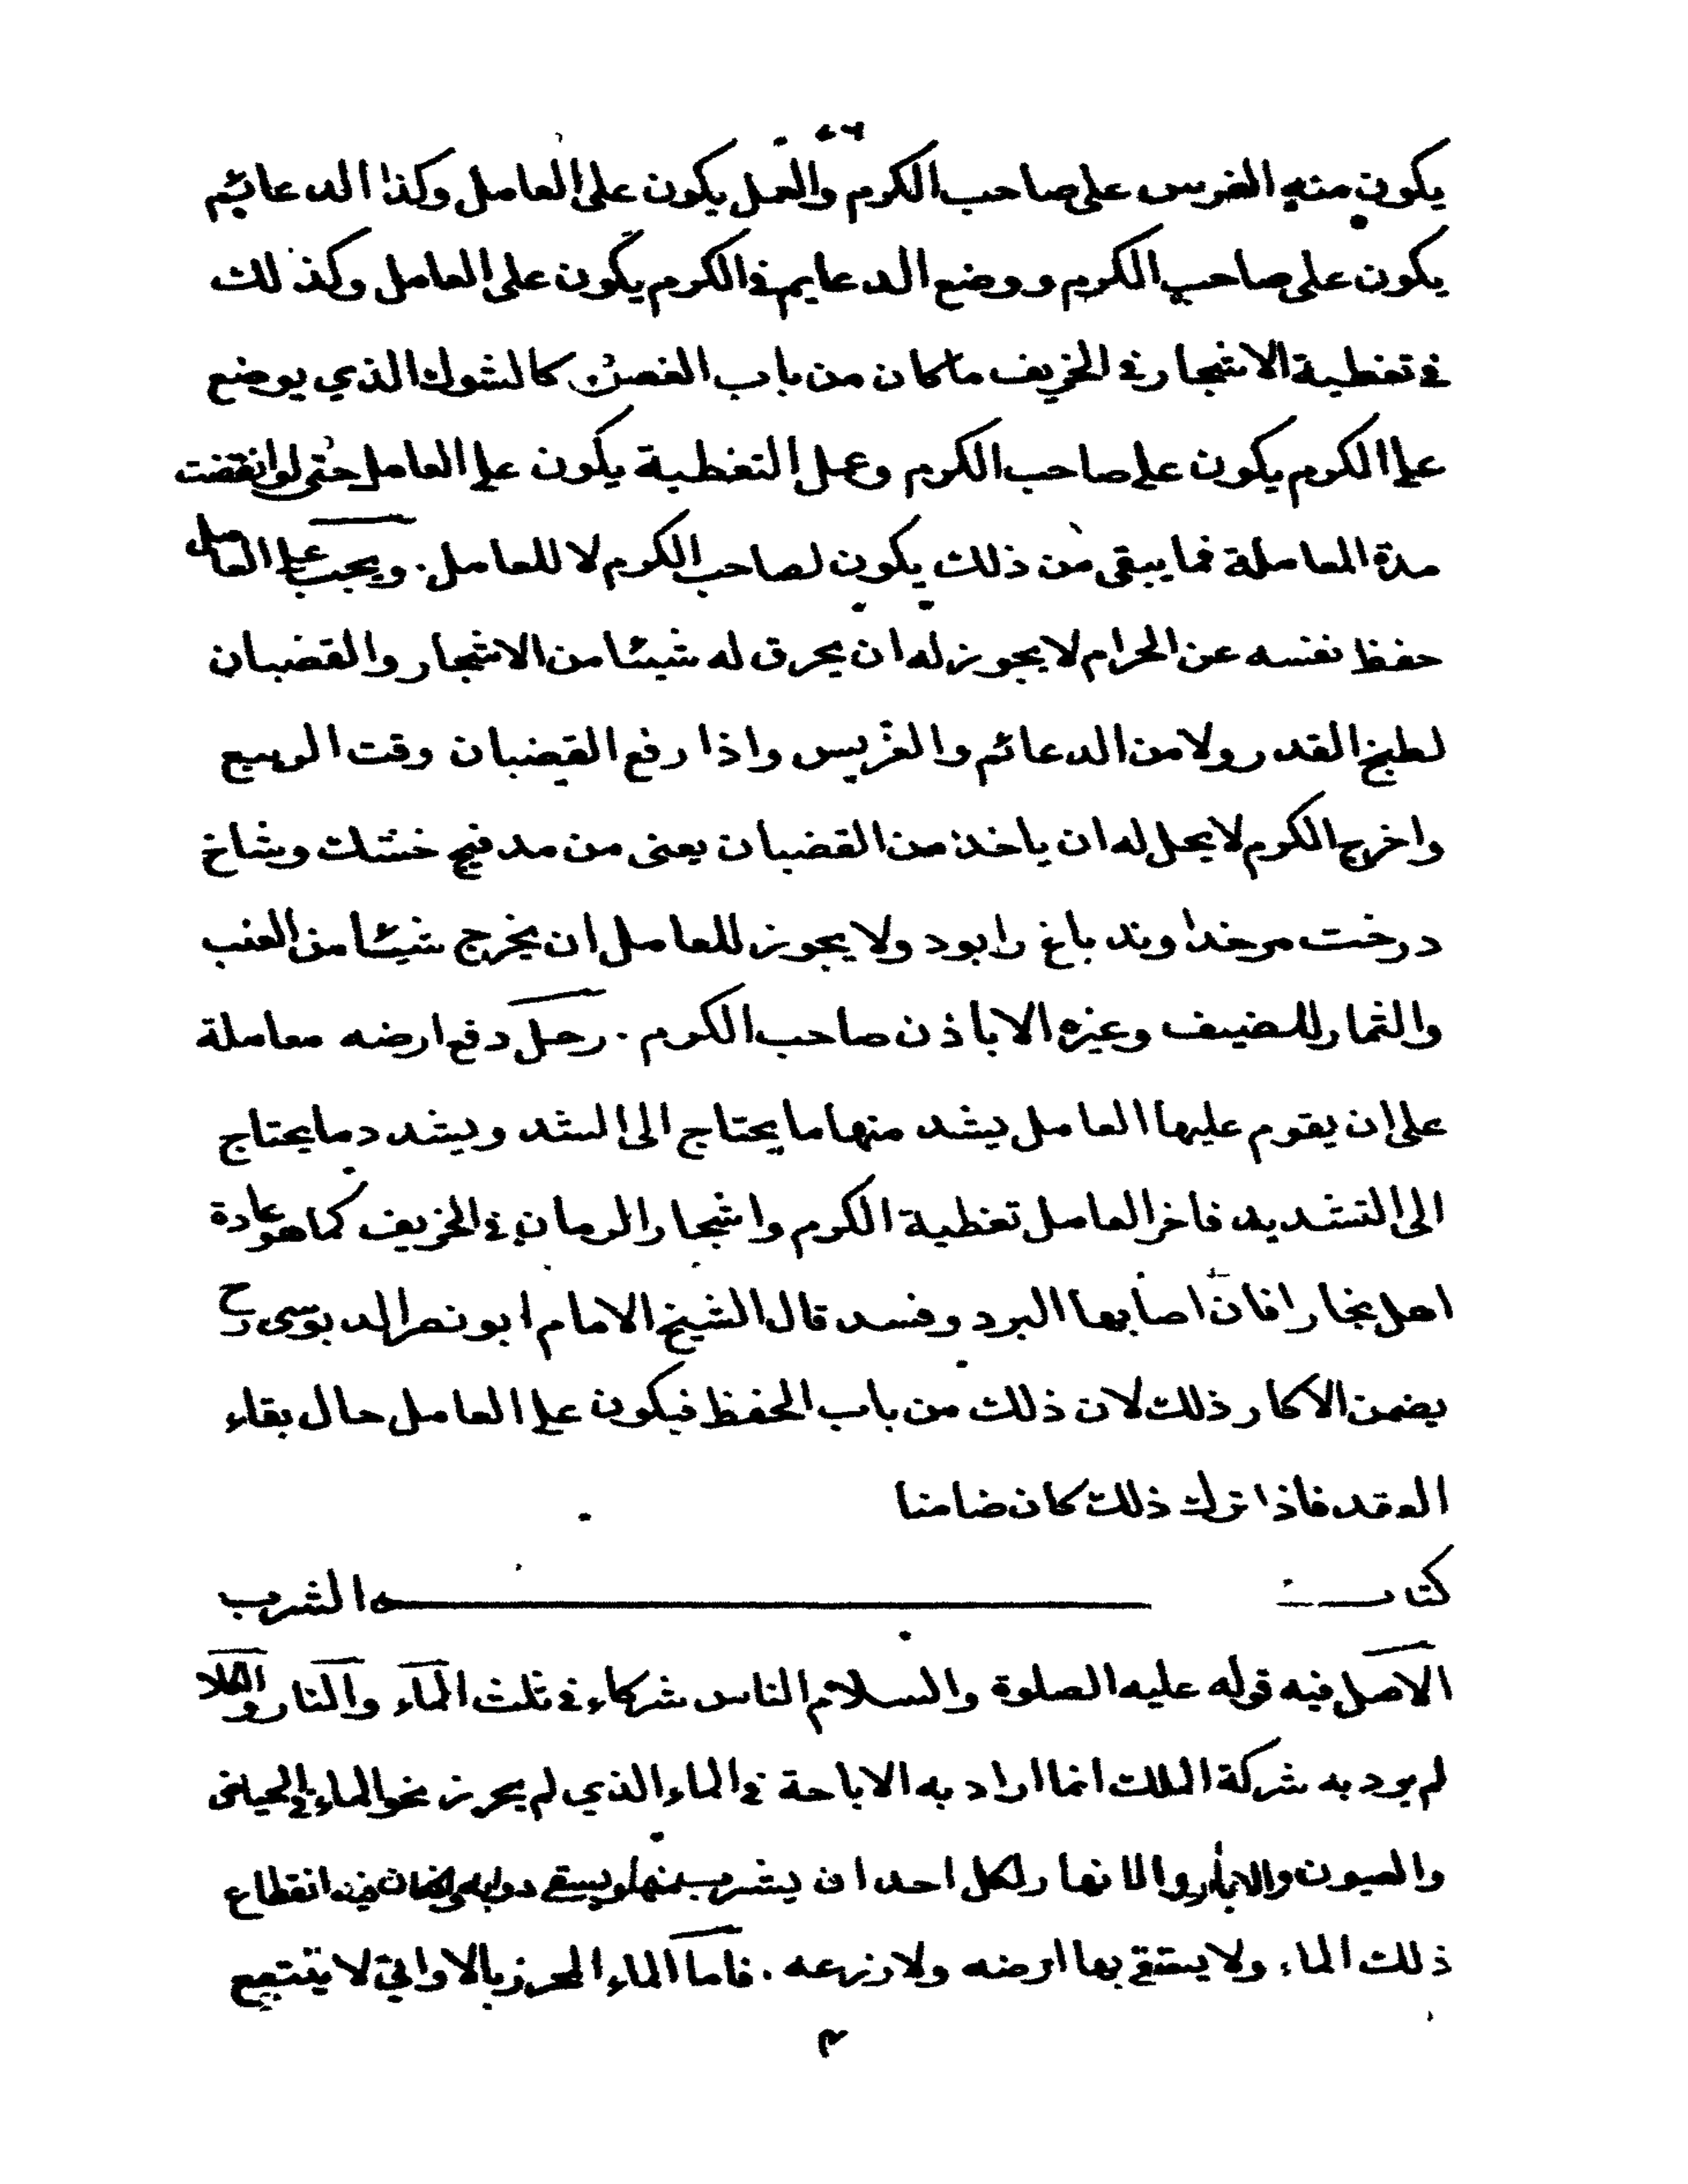 يكون منه الغرس على صاحب الكرم والعمل يكون على العامل وكذا الدعائم
يكون على صاحب الكرم ووضع الدعايم في الكرم يكون على العامل وكذلك
في تغطية الاشجار في الخريف ما كان من باب الغصن كالشوك الذي يوضع
على الكرم يكون على صاحب الكرم وعمل التغطية يكون على العامل حتى لو انقضت
مدة المعاملة فما يبقى من ذلك يكون لصاحب الكرم لا للعامل. ويجب على العامل
حفظ نفسه عن الحرام لا يجوز له ان يحرق له شيئا من الاشجار والقضبان
لطبخ القدر ولا من الدعائم والغريس واذا رفع القضبان وقت الربيع
واخرج الكرم لا يحل له ان ياخذ من القضبان يعنى من خشك وشاخ
درخت مر خداوند باغ را بود ولا يجوز للعامل ان يخرج شيئا من العنب
والثمار للضيف وغيره الا باذن صاحب الكرم. رجل دفع ارضه معاملة
على ان يقوم عليها العامل يشد منها ما يحتاج الى الشد ويشد دما يحتاج
الى التشديد فاخر العامل تغطية الكرم واشجار الرمان في الخريف كما هو عادة
اهل بخارا فان اصابها البرد وفسد قال الشيخ الامام ابو نصر الدبوسى رح
يضمن الاكار ذلك لان ذلك من باب الحفظ فيكون على العامل حال بقاء
العقد فاذا ترك ذلك كان ضامنا
كتاب الشرب
الاصل فيه قوله عليه الصلوة والسلام الناس شركاء في ثلث الماء والنار والكلا
لم يرد به شركة الملك انما اراد به الاباحة في الماء الذي لم يحرز نحو الماء في الحياض
والعيون والابار والانهار لكل احد ان يشرب منها ويسقى دوابه وان كان فيه انقطاع
ذلك الماء ولا يسقي بها ارضه ولا زرعه. فاما الماء المحرز بالاواني لا ينتفع
م